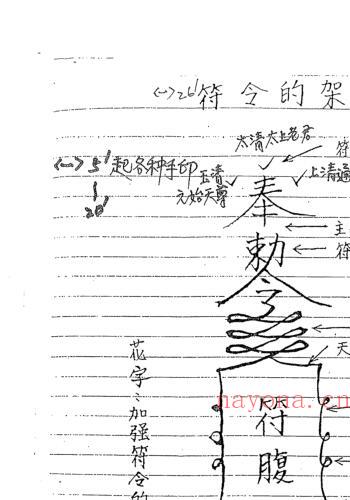 ㈠26' 符令的架
太清太上老君
符
㈠5' 起各种手印
20'
玉清
元始天尊
上清通
奉
主
勅
符
令
天
花字:加强符令的
符
腹
nayona.cn